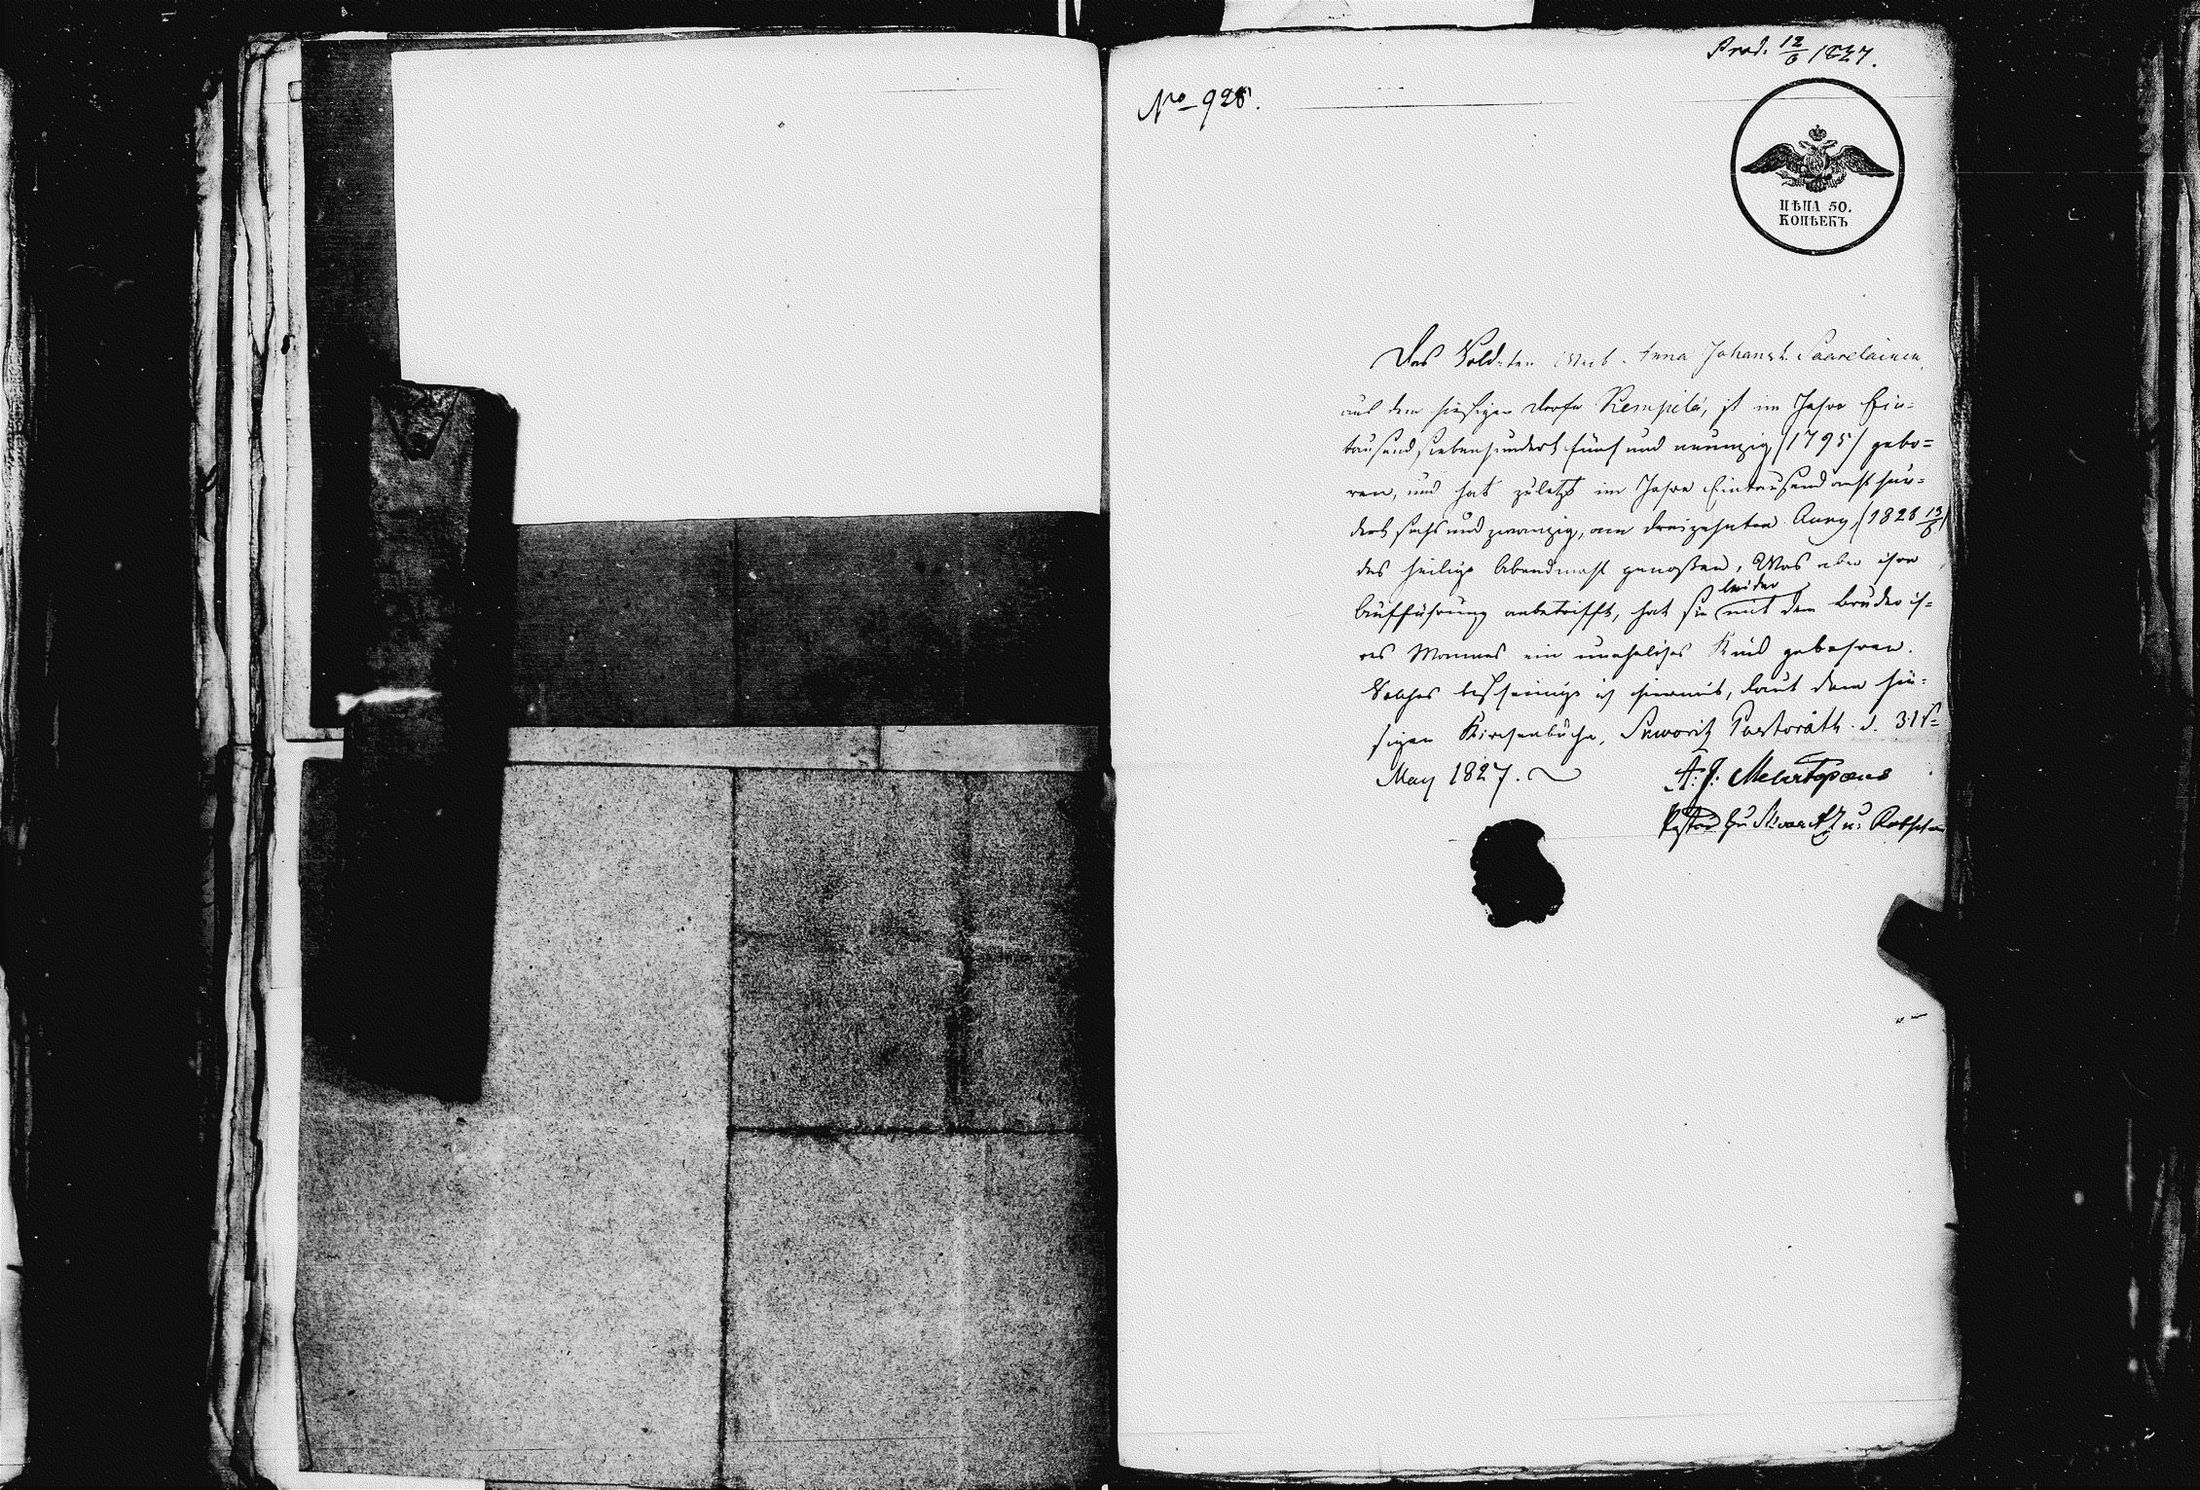 Prod. 12/6 1827.
No 925.
ЦѢНА 50.
КОПѢЕКЪ
Das Soldaten Weib Anna Johanst. Saarelainen,
aus dem hiesigen Dorfe Rempilä, ist im Jahre Ein-
tausend siebenhundert fünf und neunzig (1795) gebo=
ren, und hat zuletzt im Jahre Eintausend acht hun-
dert sechs und zwanzig, am dreizehnten (1826 13/6)
das heilige Abendmahl genoßen, Was aber ihre
Aufführung anbetrifft, hat sie leider mit dem Bruder ih-
res Mannes ein uneheliches Kind gebohren.
Solches bescheinige ich hiermit, laut dem hie-
sigen Kirchenbuche, Skworitz Pastorath d. 31
May 1827.
A. J.
Pastor zu Skworitz u.